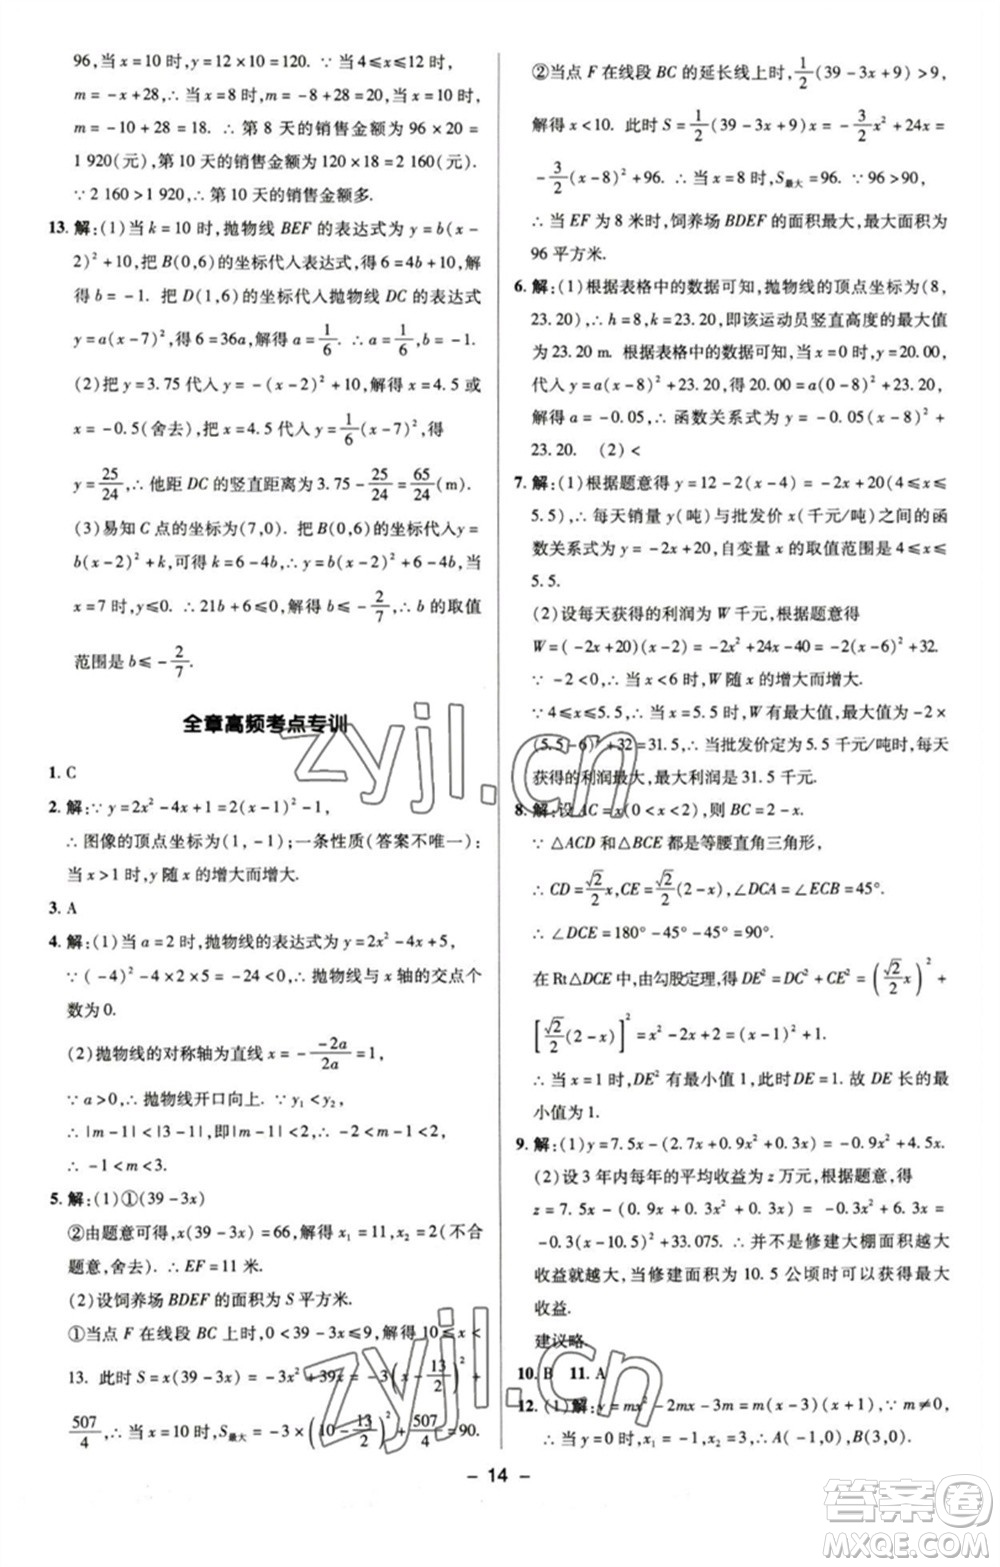 96,当 x=10 时,y=12×10=120. ∵当 4≤x≤12 时,
m=-x+28,∴当 x=8 时,m=-8+28=20,当 x=10 时,
m=-10+28=18. ∴第 8 天的销售金额为 96×20=
1 920(元),第 10 天的销售金额为 120×18=2 160(元).
∵2 160>1 920,∴第 10 天的销售金额多.
13. 解:(1)当 k=10 时,抛物线 BEF 的表达式为 y=b(x-
2)²+10,把 B(0,6)的坐标代入表达式,得 6=4b+10,解
得 b=-1. 把 D(1,6)的坐标代入抛物线 DC 的表达式
y=a(x-7)²,得 6=36a,解得 a=1/6. ∴a=1/6,b=-1.
(2)把 y=3.75 代入 y=-(x-2)²+10,解得 x=4.5 或
x=-0.5(舍去),把 x=4.5 代入 y=1/6(x-7)²,得
y=25/24,∴他距 DC 的竖直距离为 3.75-25/24=65/24(m).
(3)易知 C 点的坐标为(7,0). 把 B(0,6)的坐标代入y=
b(x-2)²+k,可得 k=6-4b,∴y=b(x-2)²+6-4b,当
x=7 时,y≤0. ∴21b+6≤0,解得 b≤-2/7,∴b 的取值
范围是 b≤-2/7.
全章高频考点专训
1. C
2. 解:∵y=2x²-4x+1=2(x-1)²-1,
∴图像的顶点坐标为(1,-1);一条性质(答案不唯一):
当 x>1 时,y 随 x 的增大而增大.
3. A
4. 解:(1)当 a=2 时,抛物线的表达式为 y=2x²-4x+5,
∵(-4)²-4×2×5=-24<0,∴抛物线与 x 轴的交点个
数为 0.
(2)抛物线的对称轴为直线 x=-(-2a)/(2a)=1,
∵a>0,∴抛物线开口向上. ∵y₁<y₂,
∴|m-1|<|3-1|,即|m-1|<2,∴-2<m-1<2,
∴-1<m<3.
5. 解:(1)①(39-3x)
②由题意可得,x(39-3x)=66,解得 x₁=11,x₂=2(不合
题意,舍去). ∴EF=11 米.
(2)设饲养场 BDEF 的面积为 S 平方米.
①当点 F 在线段 BC 上时,0<39-3x≤9,解得 10≤x<
13. 此时 S=x(39-3x)=-3x²+39x=-3(x-13/2)²+
507/4,∴当 x=10 时,S最大=-3×(10-13/2)²+507/4=90.
②当点 F 在线段 BC 的延长线上时,1/2(39-3x+9)>9,
解得 x<10. 此时 S=1/2(39-3x+9)x=-3/2x²+24x=
-3/2(x-8)²+96. ∴当 x=8 时,S最大=96. ∵96>90,
∴当 EF 为 8 米时,饲养场 BDEF 的面积最大,最大值为
96 平方米.
6. 解:(1)根据表格中的数据可知,抛物线的顶点坐标为(8,
23.20),∴h=8,k=23.20,即该运动员竖直高度的最大值
为 23.20 m. 根据表格中的数据可知,当 x=0 时,y=20.00,
代入 y=a(x-8)²+23.20,得 20.00=a(0-8)²+23.20,
解得 a=-0.05,∴函数关系式为 y=-0.05(x-8)²+
23.20. (2)<
7. 解:(1)根据题意得 y=12-2(x-4)=-2x+20(4≤x≤
5.5),∴每天销量 y(吨)与批发价 x(千元/吨)之间的函
数关系式为 y=-2x+20,自变量 x 的取值范围是 4≤x≤
5.5.
(2)设每天获得的利润为 W 千元,根据题意得
W=(-2x+20)(x-2)=-2x²+24x-40=-2(x-6)²+32.
∵-2<0,∴当 x<6 时,W 随 x 的增大而增大.
∵4≤x≤5.5,∴当 x=5.5 时,W 有最大值,最大值为-2×
(5.5-6)²+32=31.5,∴当批发价定为 5.5 千元/吨时,每天
获得的利润最大,最大利润是 31.5 千元.
8. 解:设 AC=x(0<x<2),则 BC=2-x.
∵△ACD 和△BCE 都是等腰直角三角形,
∴CD=√2/2x,CE=√2/2(2-x),∠DCA=∠ECB=45°.
∴∠DCE=180°-45°-45°=90°.
在 Rt△DCE 中,由勾股定理,得 DE²=DC²+CE²=(√2/2x)²+
[√2/2(2-x)]²=x²-2x+2=(x-1)²+1.
∴当 x=1 时,DE²有最小值 1,此时DE=1. 故 DE 长的最
小值为 1.
9. 解:(1)y=7.5x-(2.7x+0.9x²+0.3x)=-0.9x²+4.5x.
(2)设 3 年内每年的平均收益为 z 万元,根据题意,得
z=7.5x-(0.9x+0.3x²+0.3x)=-0.3x²+6.3x=
-0.3(x-10.5)²+33.075. ∴并不是修建大棚面积越大
收益就越大,当修建面积为 10.5 公顷时可以获得最大
收益.
建议略.
10. B 11. A
12. (1)解:y=mx²-2mx-3m=m(x-3)(x+1),∵m≠0,
∴当 y=0 时,x₁=-1,x₂=3,∴A(-1,0),B(3,0).
- 14 -
zyjl.cn
zyjl.cn
答案圈
MXQE.COM